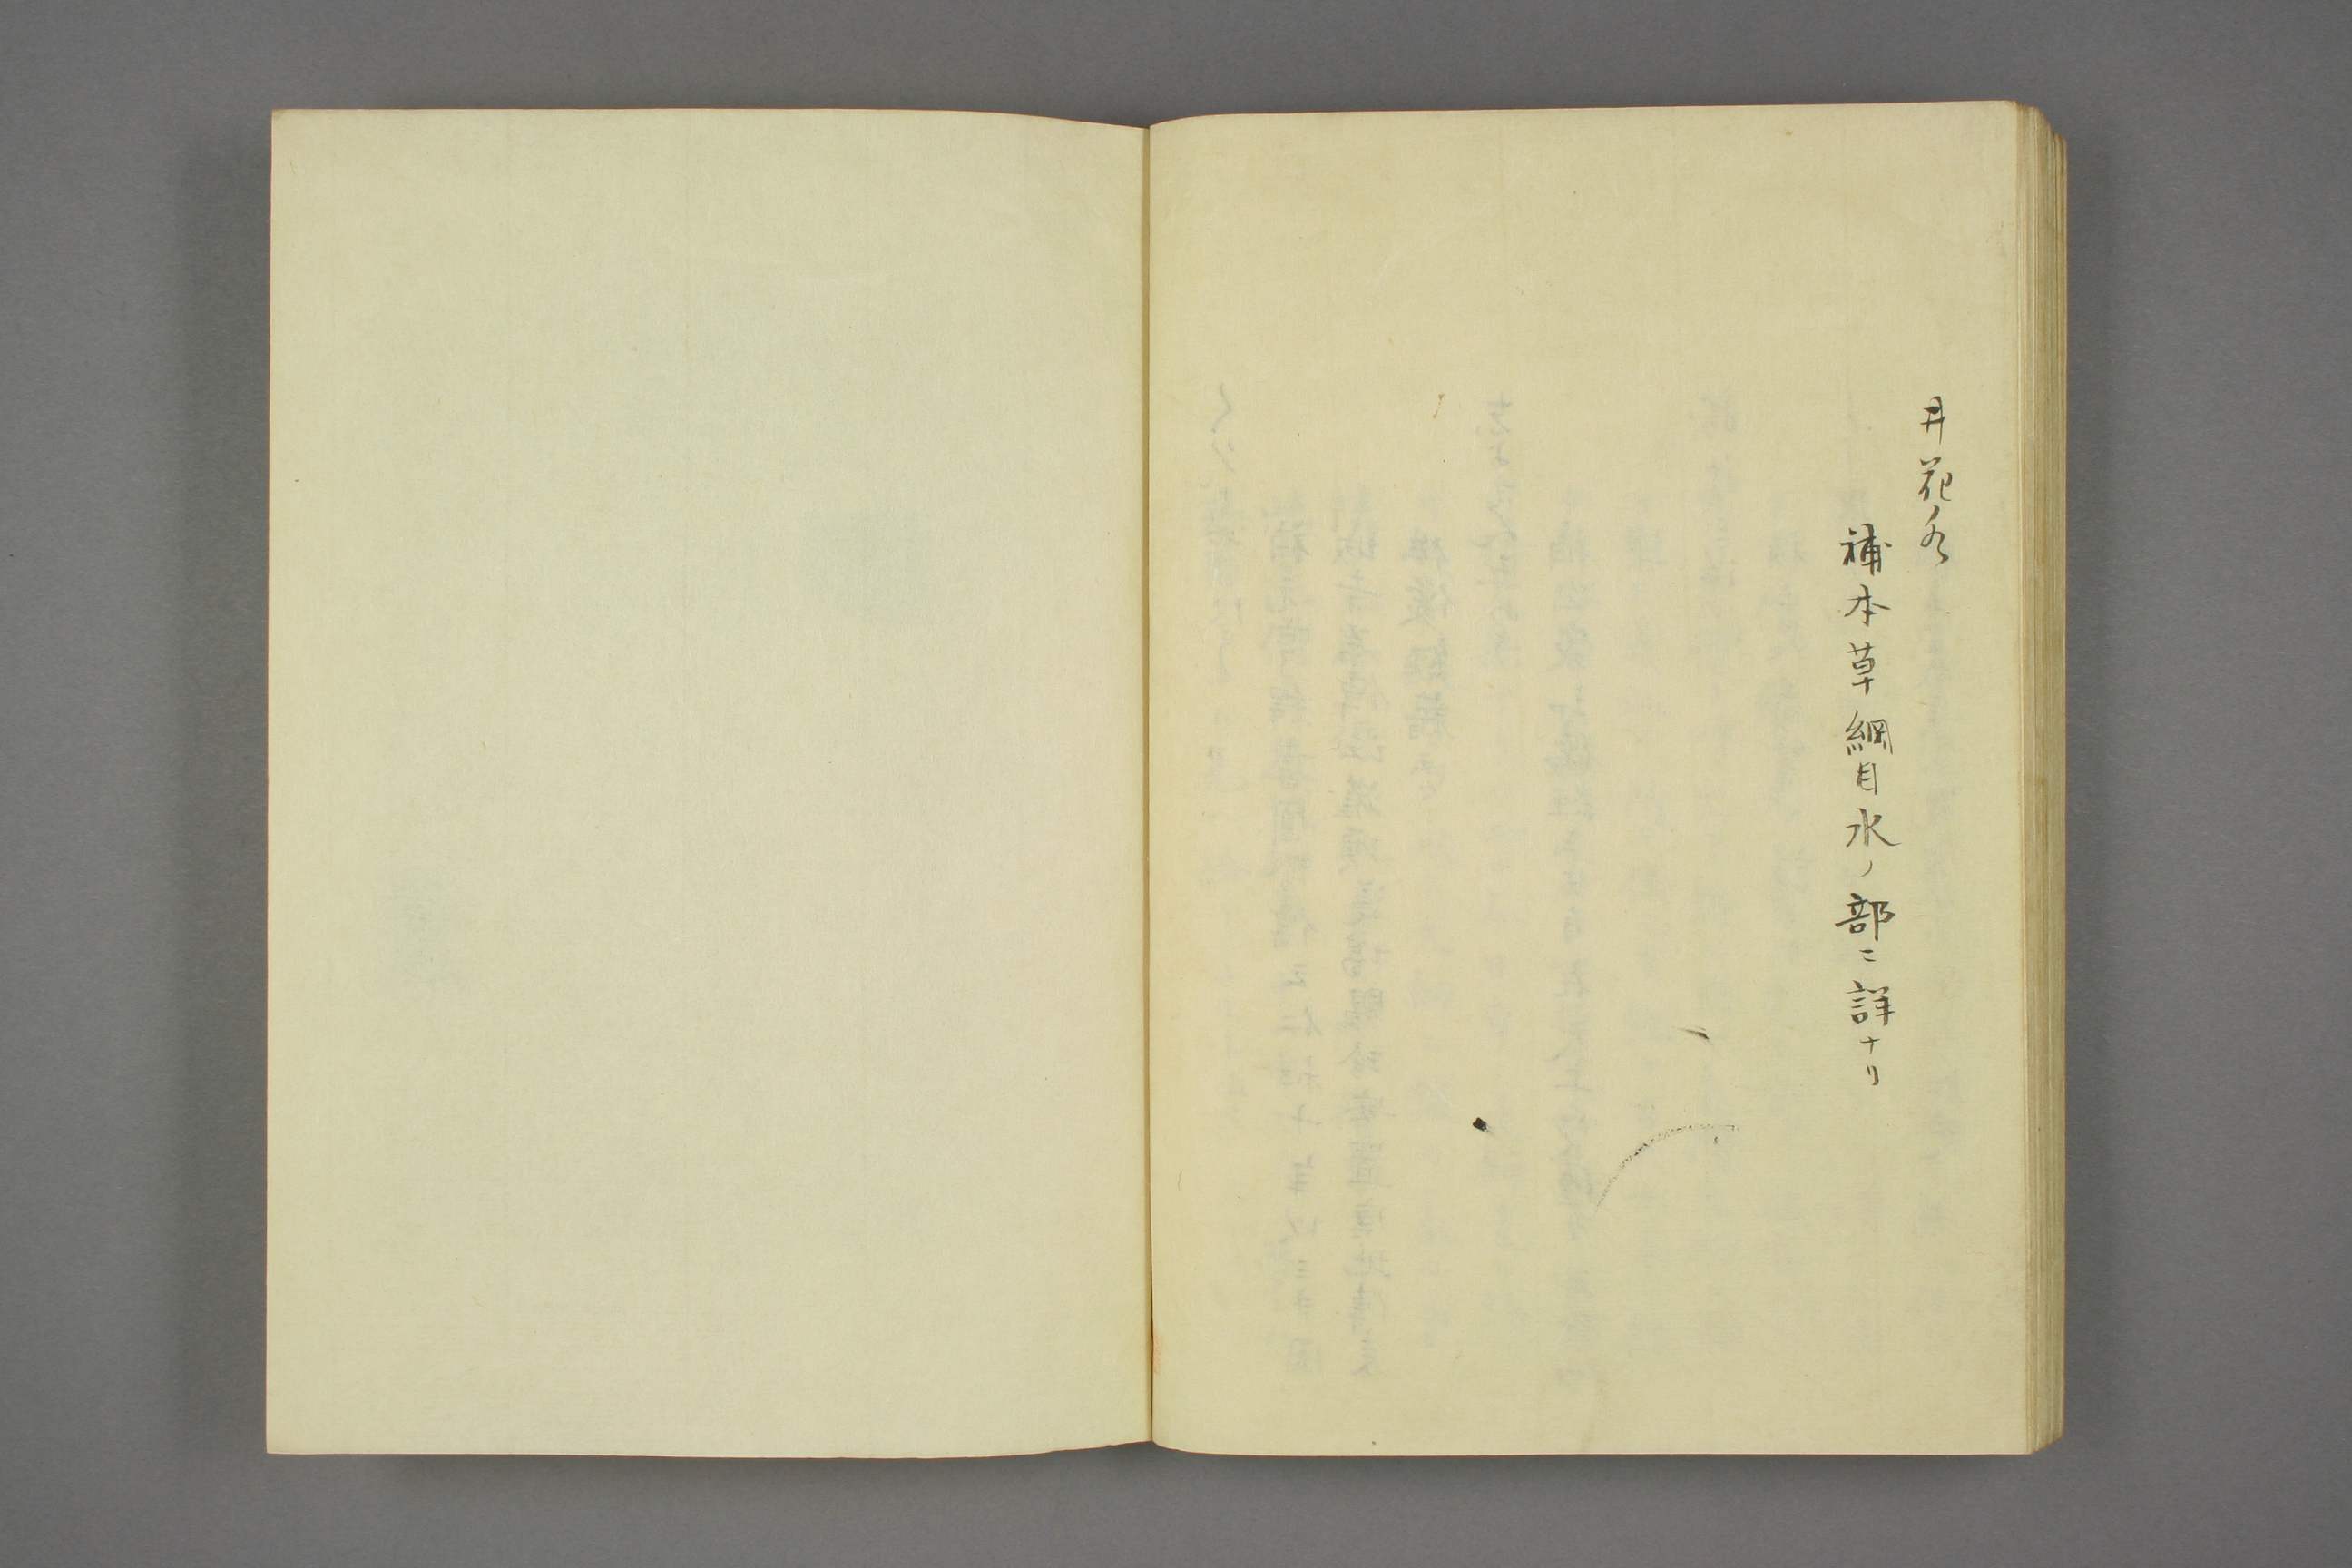 井花水
補本草綱目水ノ部ニ詳ナリ